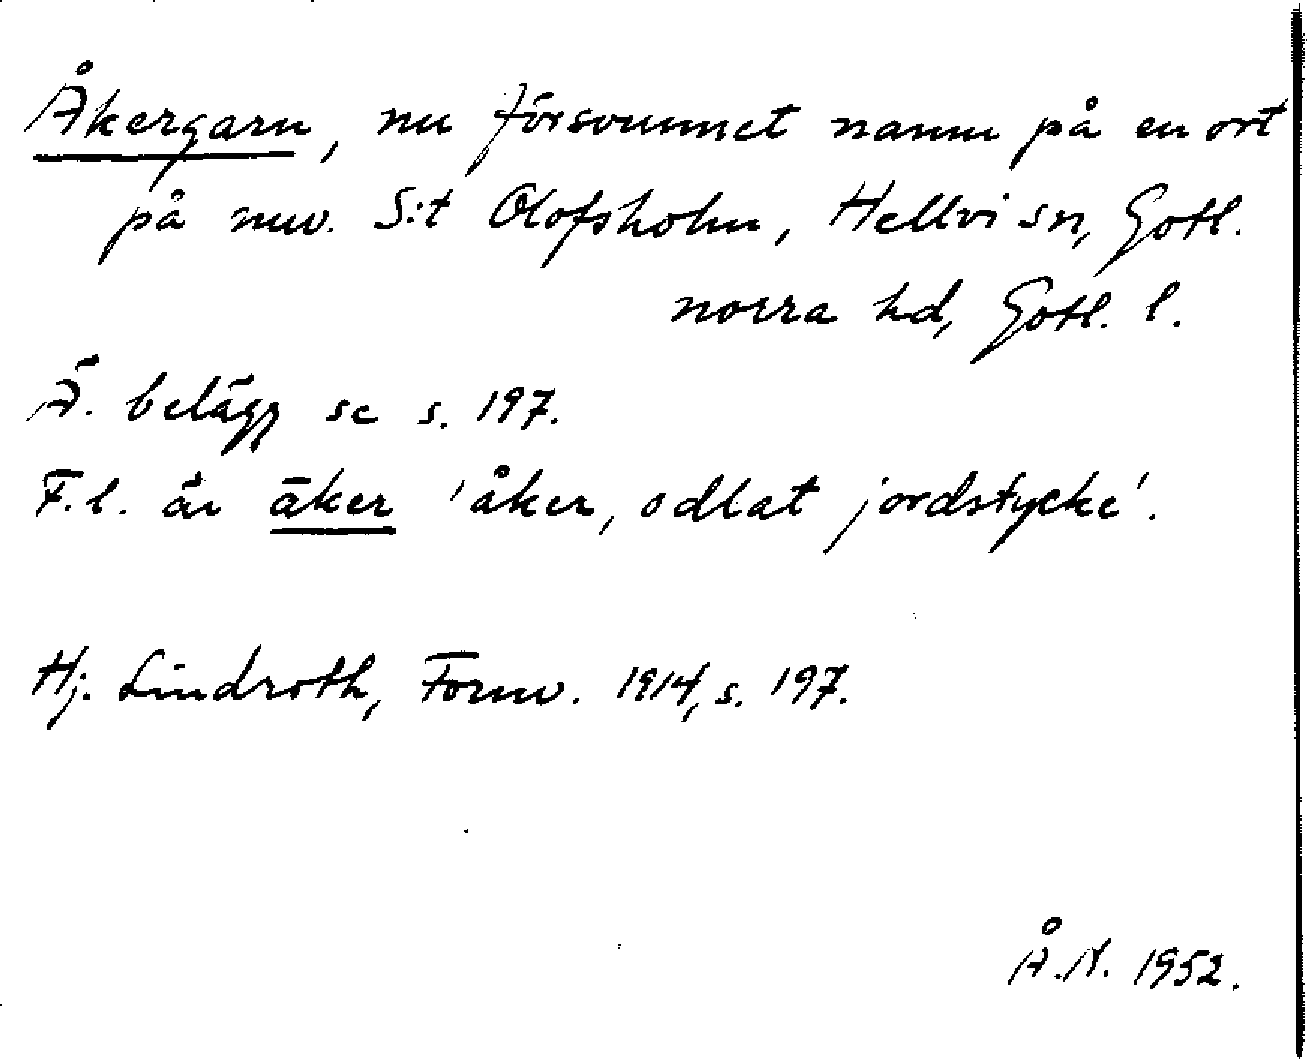 Åkergarn, nu försvunnet namn på en ort
på nuv. S:t Olofsholm, Hellvi sn, Gotl.
norra hd, Gotl. l.
Ä. belägg se s. 197.
F.l. är āker 'åker, odlat jordstycke'.
Hj. Lindroth, Fornv. 1914, s. 197.
Å.N. 1952.